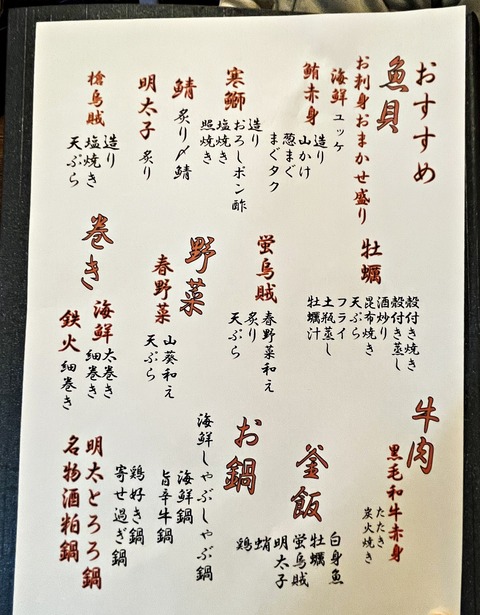 おすすめ
魚貝
お刺身おまかせ盛り
海鮮ユッケ
鮪赤身
造り
山かけ
葱まぐ
まぐタク
寒鰤
造り
おろしポン酢
塩焼き
照焼き
鯖
炙り〆鯖
明太子
炙り
槍烏賊
造り
塩焼き
天ぷら
牡蠣
殻付き焼き
殻付き蒸し
酒炒り
昆布焼き
天ぷら
フライ
土瓶蒸し
牡蠣汁
蛍烏賊
春野菜和え
炙り
天ぷら
野菜
春野菜
山葵和え
天ぷら
巻き
海鮮
太巻き
細巻き
鉄火
細巻き
牛肉
黒毛和牛赤身
たたき
炭火焼き
釜飯
白身魚
牡蠣
蛍烏賊
明太子
蛸
鶏
お鍋
海鮮しゃぶしゃぶ鍋
海鮮鍋
旨辛牛鍋
鶏好き鍋
寄せ過ぎ鍋
明太とろろ鍋
名物酒粕鍋